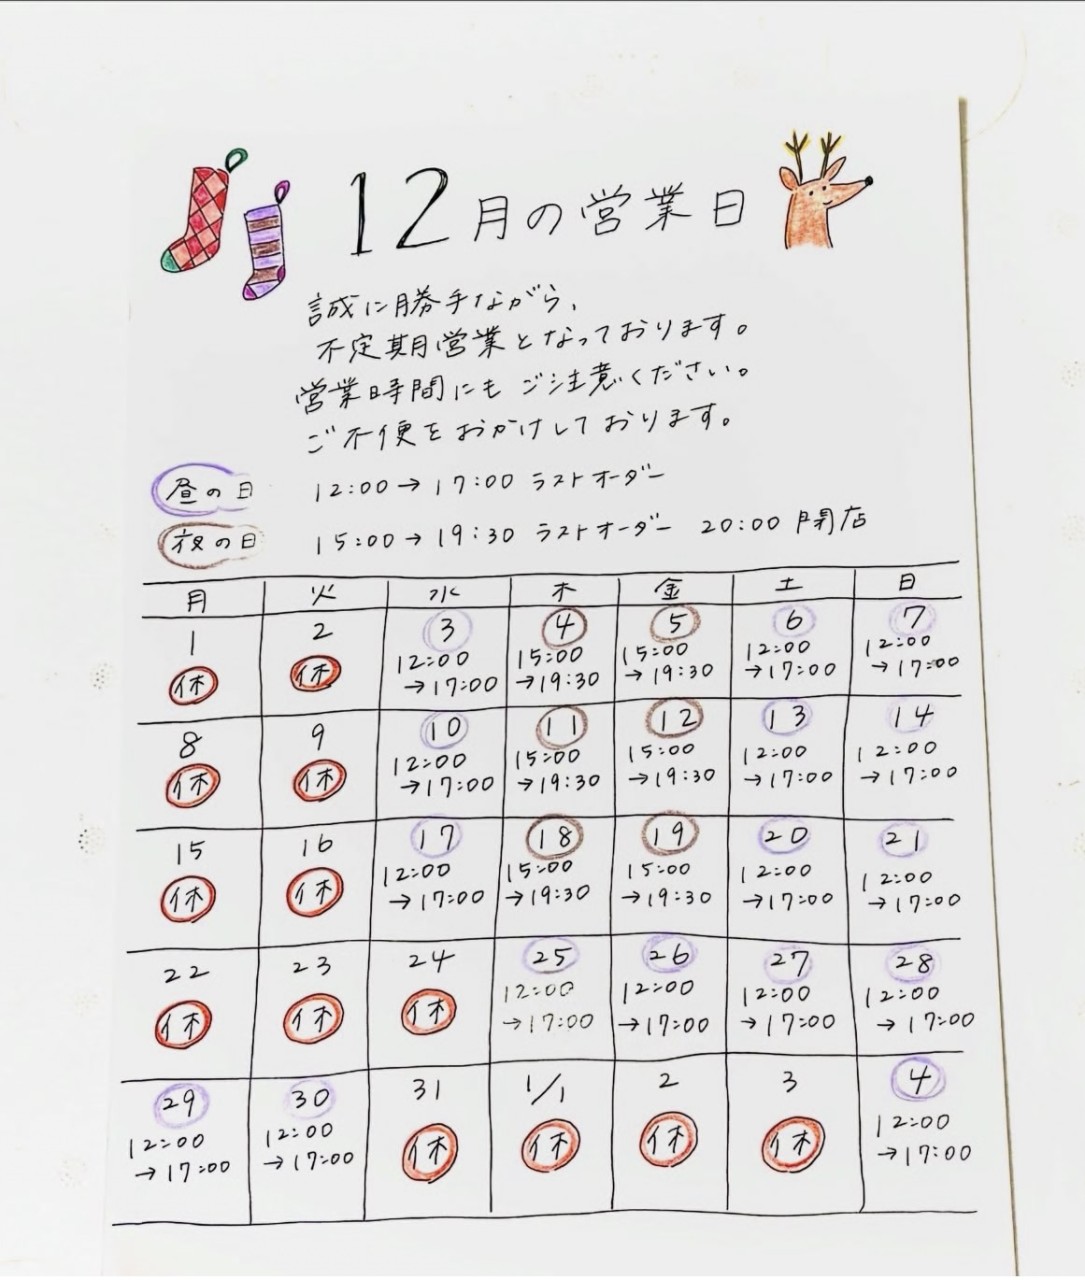 12月の営業日
誠に勝手ながら、
不定期営業となっております。
営業時間にもご注意ください。
ご不便をおかけしております。
昼の日 12:00→17:00 ラストオーダー
夜の日 15:00→19:30 ラストオーダー 20:00 閉店
月 火 水 木 金 土 日
1 2 3 4 5 6 7
休 休 12:00 15:00 15:00 12:00 12:00
→17:00 →19:30 →19:30 →17:00 →17:00
8 9 10 11 12 13 14
休 休 12:00 15:00 15:00 12:00 12:00
→17:00 →19:30 →19:30 →17:00 →17:00
15 16 17 18 19 20 21
休 休 12:00 15:00 15:00 12:00 12:00
→17:00 →19:30 →19:30 →17:00 →17:00
22 23 24 25 26 27 28
休 休 休 12:00 12:00 12:00 12:00
→17:00 →17:00 →17:00 →17:00
29 30 31 1/1 2 3 4
12:00 12:00 休 休 休 休 12:00
→17:00 →17:00 →17:00